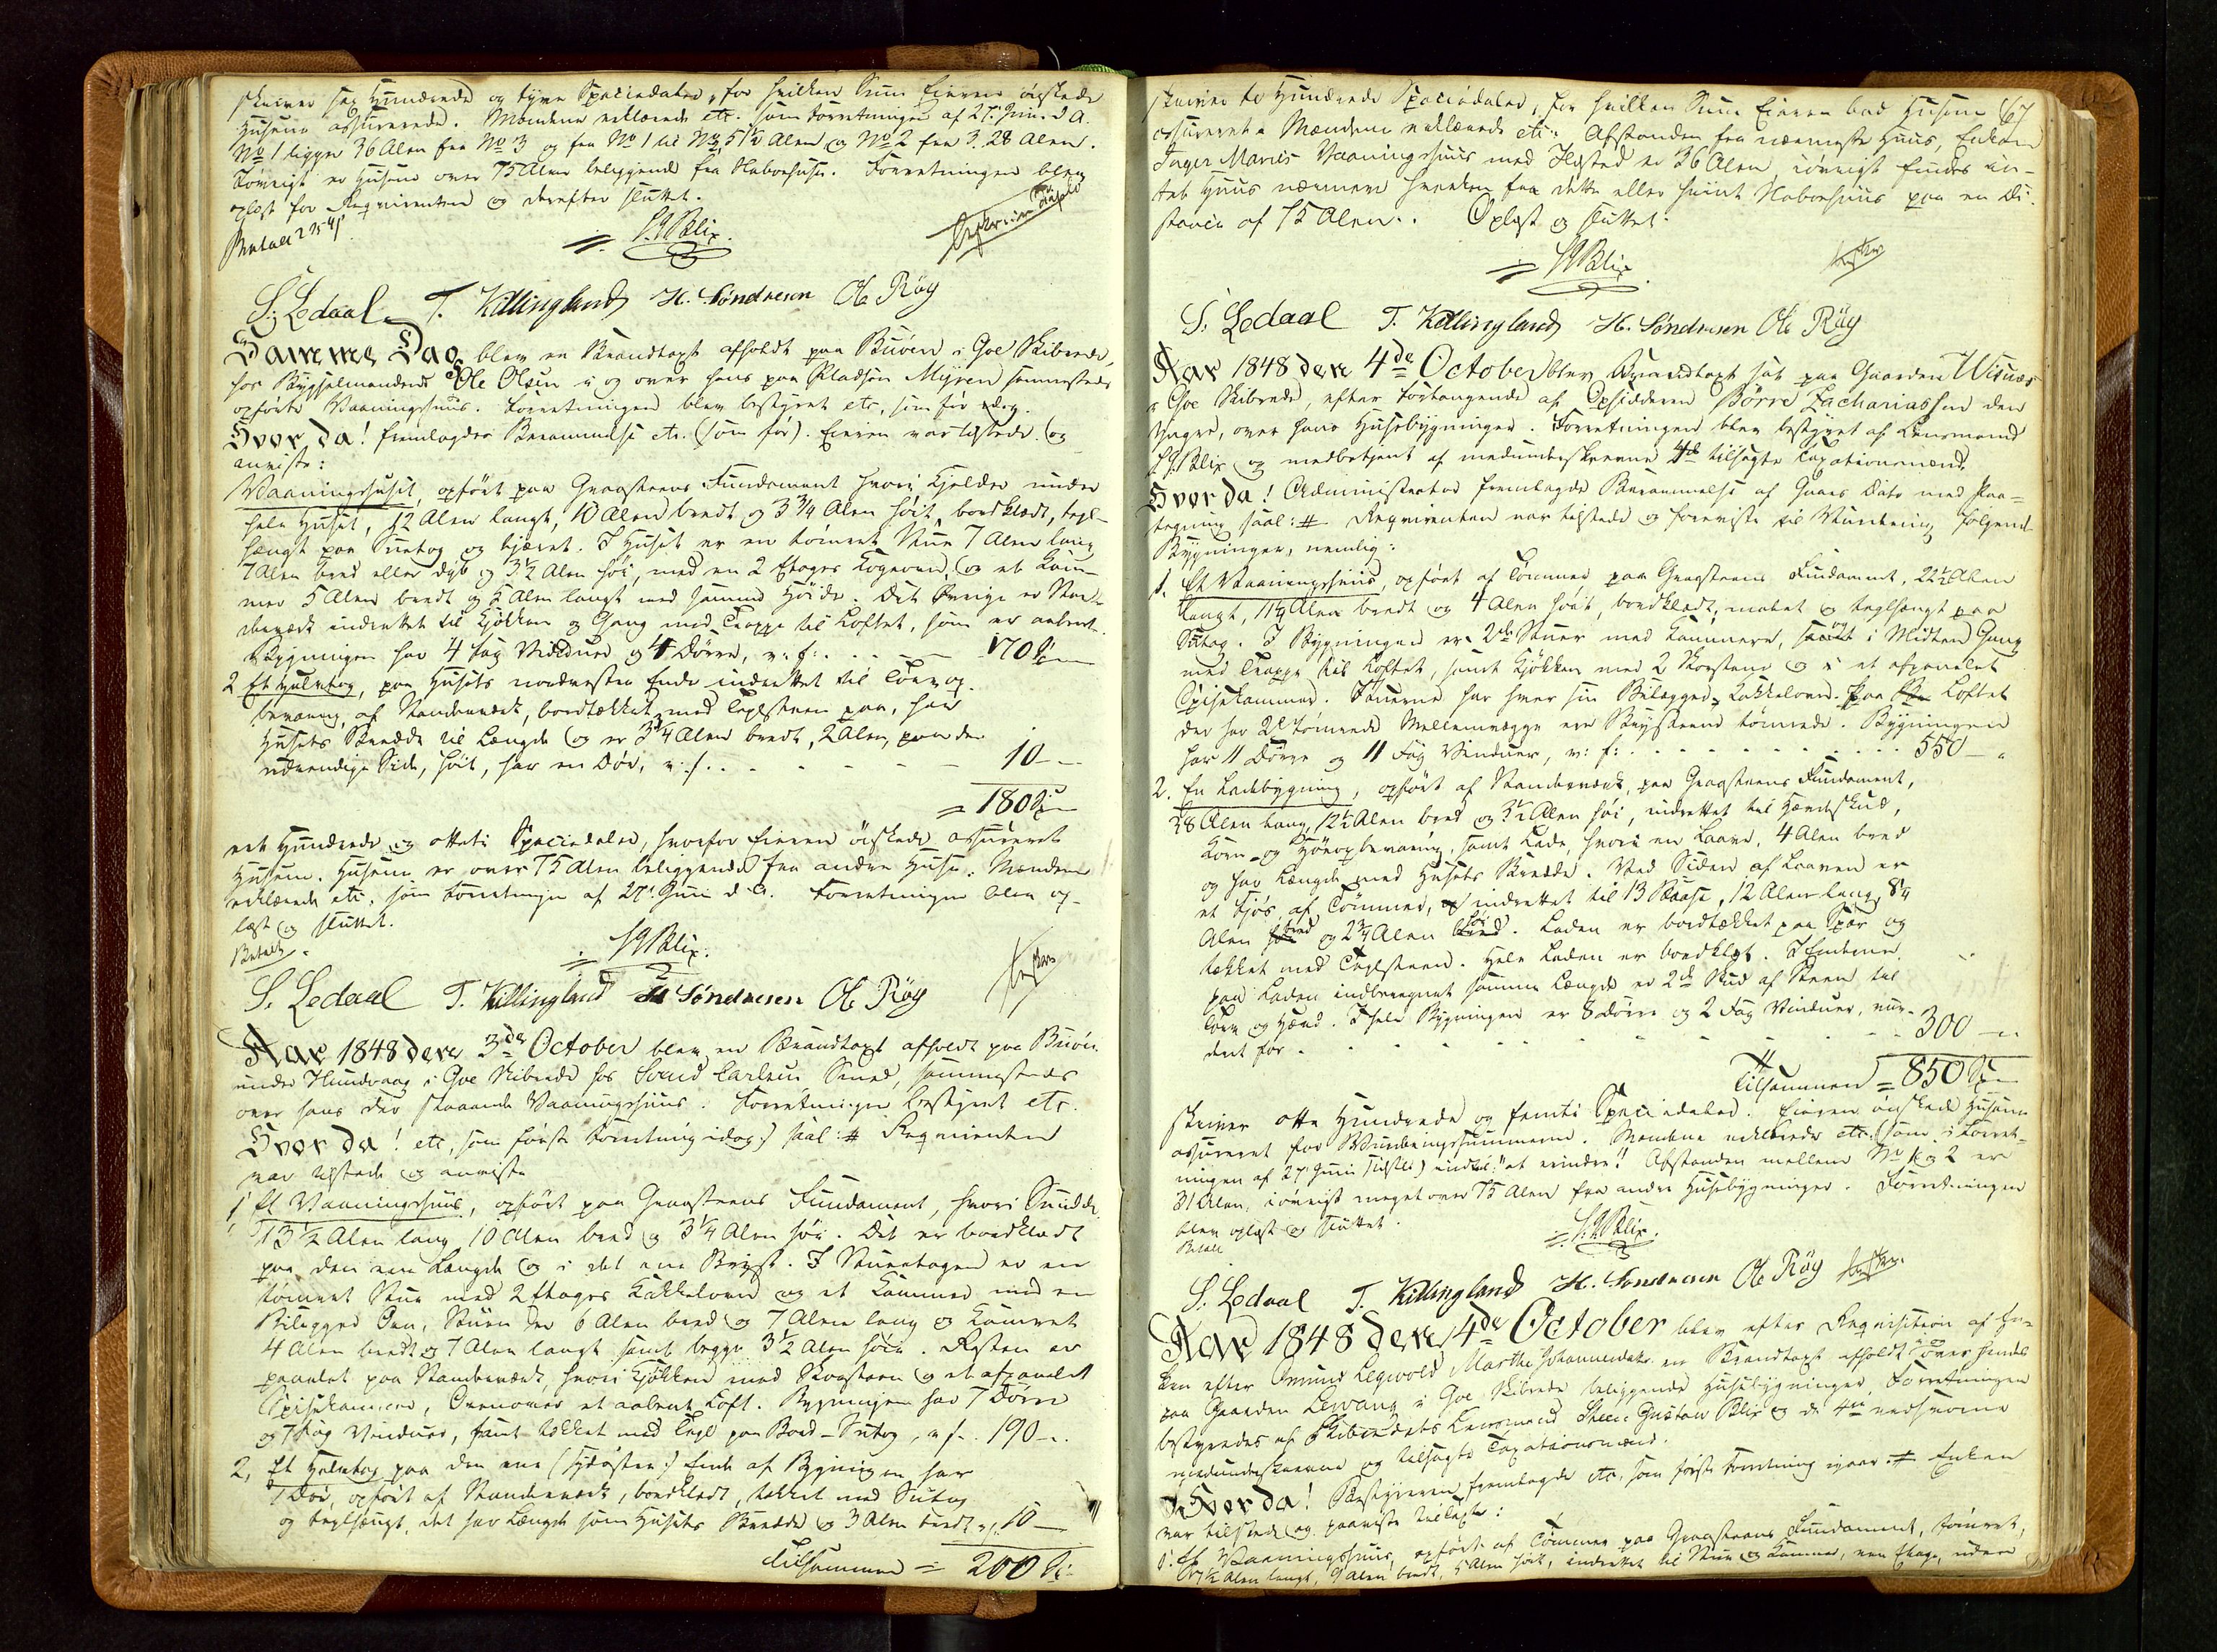 skriver sex Hundrede og tyve Speciedaler, for hvilken Sum Eieren ønskede
Husene assurerede. Mændene erklærede etc. som Forretningen af 27 Juni d. A.
No 1 ligger 36 Alen fra No 3 og fra No 1 til No 2, 51½ Alen og No 2 fra 3. 28 Alen.
Forøvrigt er Husene over 75 Alen beliggende fra Nabohuse. Forretningen blev
oplæst for Reqvirenten og derefter sluttet.
Betalt
S. G. Blix.
S. Ledaal T. Killingland H. Søndresen Ole Røy
Samme Dag blev en Brandtaxt afholdt paa Buøen i Goe Skibrede,
hos Bygselmanden Ole Olsen i og over hans paa Pladsen Myren sammesteds
opførte Vaaningshuus. Forretningen blev bestyret etc. som før
Hvor da! fremlagdes Berammelse etc. (som før). Eieren var tilstede og
anviste:
Vaaningshuset, opført paa Graasteens Fundament hvori Kjelder under
hele Huset, 12 Alen langt, 10 Alen bredt og 3¾ Alen høit, bordklædt, tegl-
hængt paa Sutag og tjæret. I Huset er en tømret Stue 7 Alen lang
7 Alen bred eller dyb og 3½ Alen høi, med en 2 Etages Kogeovn, og et Kam-
mer 5 Alen bredt og 5 Alen langt med samme Høide. Det Øvrige er Stan-
derværk indrettet til Kjøkken og Gang med Trappe til Loftet, som er aabent.
Bygningen har 4 Fag Vinduer og 4 Dørre, v: f: . . . 170 Sp
2 Et Halvtag, paa Husets nordvestre Ende indrettet til Tørvop-
bevaring, af Standerværk, bordtækket med Taglsteen paa, har
Husets Bredde til Længde og er 3¼ Alen bredt, 2 Alen, paa den
udvendige Side, høit, har en Dør, v: f. . . 10 -
= 180 Sp
eet Hundrede og otteti Speciedaler, hvorfor Eieren ønskede assureret
Husene. Husene er over 75 Alen beliggende fra andre Huse. Mændene
erklærede etc. som Forretningen af 27 Juni d. A. Forretningen blev op-
læst og sluttet.
Betalt.
S. G. Blix.
S. Ledaal T. Killingland H. Søndresen Ole Røy
Aar 1848 den 3de October blev en Brandtaxt afholdt paa Buøen
under Hundvaag i Goe Skibrede hos Svend Carlsen Smed, sammesteds
over hans der staaende Vaaningshuus. Forretningen bestyret etc.
Hvor da! etc. som første Forretning idag.) saal: # Reqvirenten
var tilstede og anviste
1 Et Vaaningshuus, opført paa Graasteens Fundament, hvori Smidde,
13½ Alen lang 10 Alen bred og 3¼ Alen høi. Det er bordklædt
paa den ene Længde og i det ene Bryst. I Stueetagen er en
tømret Stue med 2 Etages Kakkelovn og et Kammer med en
Bilægger Ovn, Stuen er 6 Alen bred og 7 Alen lang og Kamret
4 Alen bredt og 7 Alen langt samt begge 3½ Alen høie. Resten er
panelet paa Standerværk, hvori Kjøkken med Skorsteen og et afpanelet
Spisekammer, Ovenover et aabent Loft. Bygningen har 7 Dørre
og 7 Fag Vinduer, samt tækket med Tegl paa Bord-Sutag, v f. . 190 -.
2, Et Halvtag paa den ene (sydøstre) Ende af Bygningen har
1 Dør, opført af Standerværk, bordklædt, tækket med Sutag
og teglhængt, det har Længde som Husets Bredde og 3 Alen bredt v f. 10 -
Tilsammen = 200 Sp
skriver to Hundrede Speciedaler, for hvilken Sum Eieren bad Husene 67
assureret. Mændene erklærede etc. Afstanden fra nærmeste Huus, Enken
Inger Maries Vaaningshuus med Ildsted er 36 Alen, iøvrigt findes in-
tet Huus nærmere hverken fra dette eller hiint Naboehuus paa en Di-
stance af 75 Alen. Oplæst og sluttet.
S. G. Blix
S. Ledaal T. Killingland H. Søndresen Ole Røy
Aar 1848 den 4de October blev Brandtaxt sat paa Gaarden Wisnæs
i Goe Skibrede, efter Forlangende af Opsidderen Børre Zachariassen den
Yngre, over hans Huusebygninger. Forretningen blev bestyret af Lensmand
S. G. Blix og medbetjent af medunderskrevne 4de tilsagte Taxationsmænd.
Hvor da! Administrator fremlagde Berammelse af Gaars Dato med Paa-
tegning saal: # Reqvirenten var tilstede og foreviste til Vurdering følgende
Bygninger, nemlig:
1. Et Vaaningshuus, opført af Tømmer paa Graasteens Fundament, 22½ Alen
langt, 11¼ Alen bredt og 4 Alen høit, bordklædt, malet og teglhængt paa
Sutag. I Bygningen er 2de Stuer med Kammere, samt i Midten Gang
med Trappe til Loftet, samt Kjøkken med 2 Skorstene og et afpanelet
Spisekammer. Stuerne har hver sin Bilægger-Kakkelovn. Paa Loftet
der har 2de tømrede Mellemvægge ere Brystene tømrede. Bygningen
har 11 Dørre og 11 Fag Vinduer, v: f: . . . 550 - "
2. En Ladebygning, opført af Standerværk, paa Graasteens Fundament,
38 Alen lang, 12½ Alen bred og 3½ Alen høi, indrettet til Hæsteskud,
Korn- og Høeopbevaring, samt Lade, hvori en Laave, 4 Alen bred
og har Længde med Husets Bredde. Ved Siden af Laaven er
et Fjøs af Tømmer, indrettet til 13 Baase, 12 Alen lang, 8¼
Alen bred og 2¾ Alen høi. Laden er bordtækket paa Spær og
tækket med Taglsteen. Hele Laden er bordklædt. I Enderne
paa Laden indberegnet samme Længde er 2de Skud af Steen til
Tørv og Hæmd. I hele Bygningen er 8 Dørre og 2 Fag Vinduer, vur-
deret for . . . 300 -
Tilsammen = 850 Sp
skriver otte Hundrede og femti Speciedaler. Eieren ønskede Husene
assureret for Vurderingssummerne. Mændene erklærede etc. (som i Forret-
ningen af 27 Juni sidstl:) indtil: "at erindre"! Afstanden mellem No 1 og 2 er
31 Alen, iøvrigt meget over 75 Alen fra andre Husebygninger. Forretningen
blev oplæst og sluttet.
Betalt
S. G. Blix.
S. Ledaal T. Killingland H. Søndresen Ole Røy
Aar 1848 den 4de October blev efter Reqvisition af En-
ken efter Omund Legwold Marthe Johannesdatr. en Brandtaxt afholdt i og over hendes
paa Gaarden Lewang i Goe Skibrede beliggende Husebygninger, Forretningen
bestyredes af Skibredets Lensmand Steen Gustav Blix og de 4re edsvorne
medunderskrevne og tilsagte Taxationsmænd.
Hvor da! Bestyreren fremlagde etc. som første Forretning igaar # Enken
var tilstede og paaviste
1. Et Vaaningshuus, opført af Tømmer paa Graasteens Fundament, tømret,
17½ Alen langt, 9 Alen bredt, 5 Alen høit, indrettet til Stue og Kammer, een Etage, uden